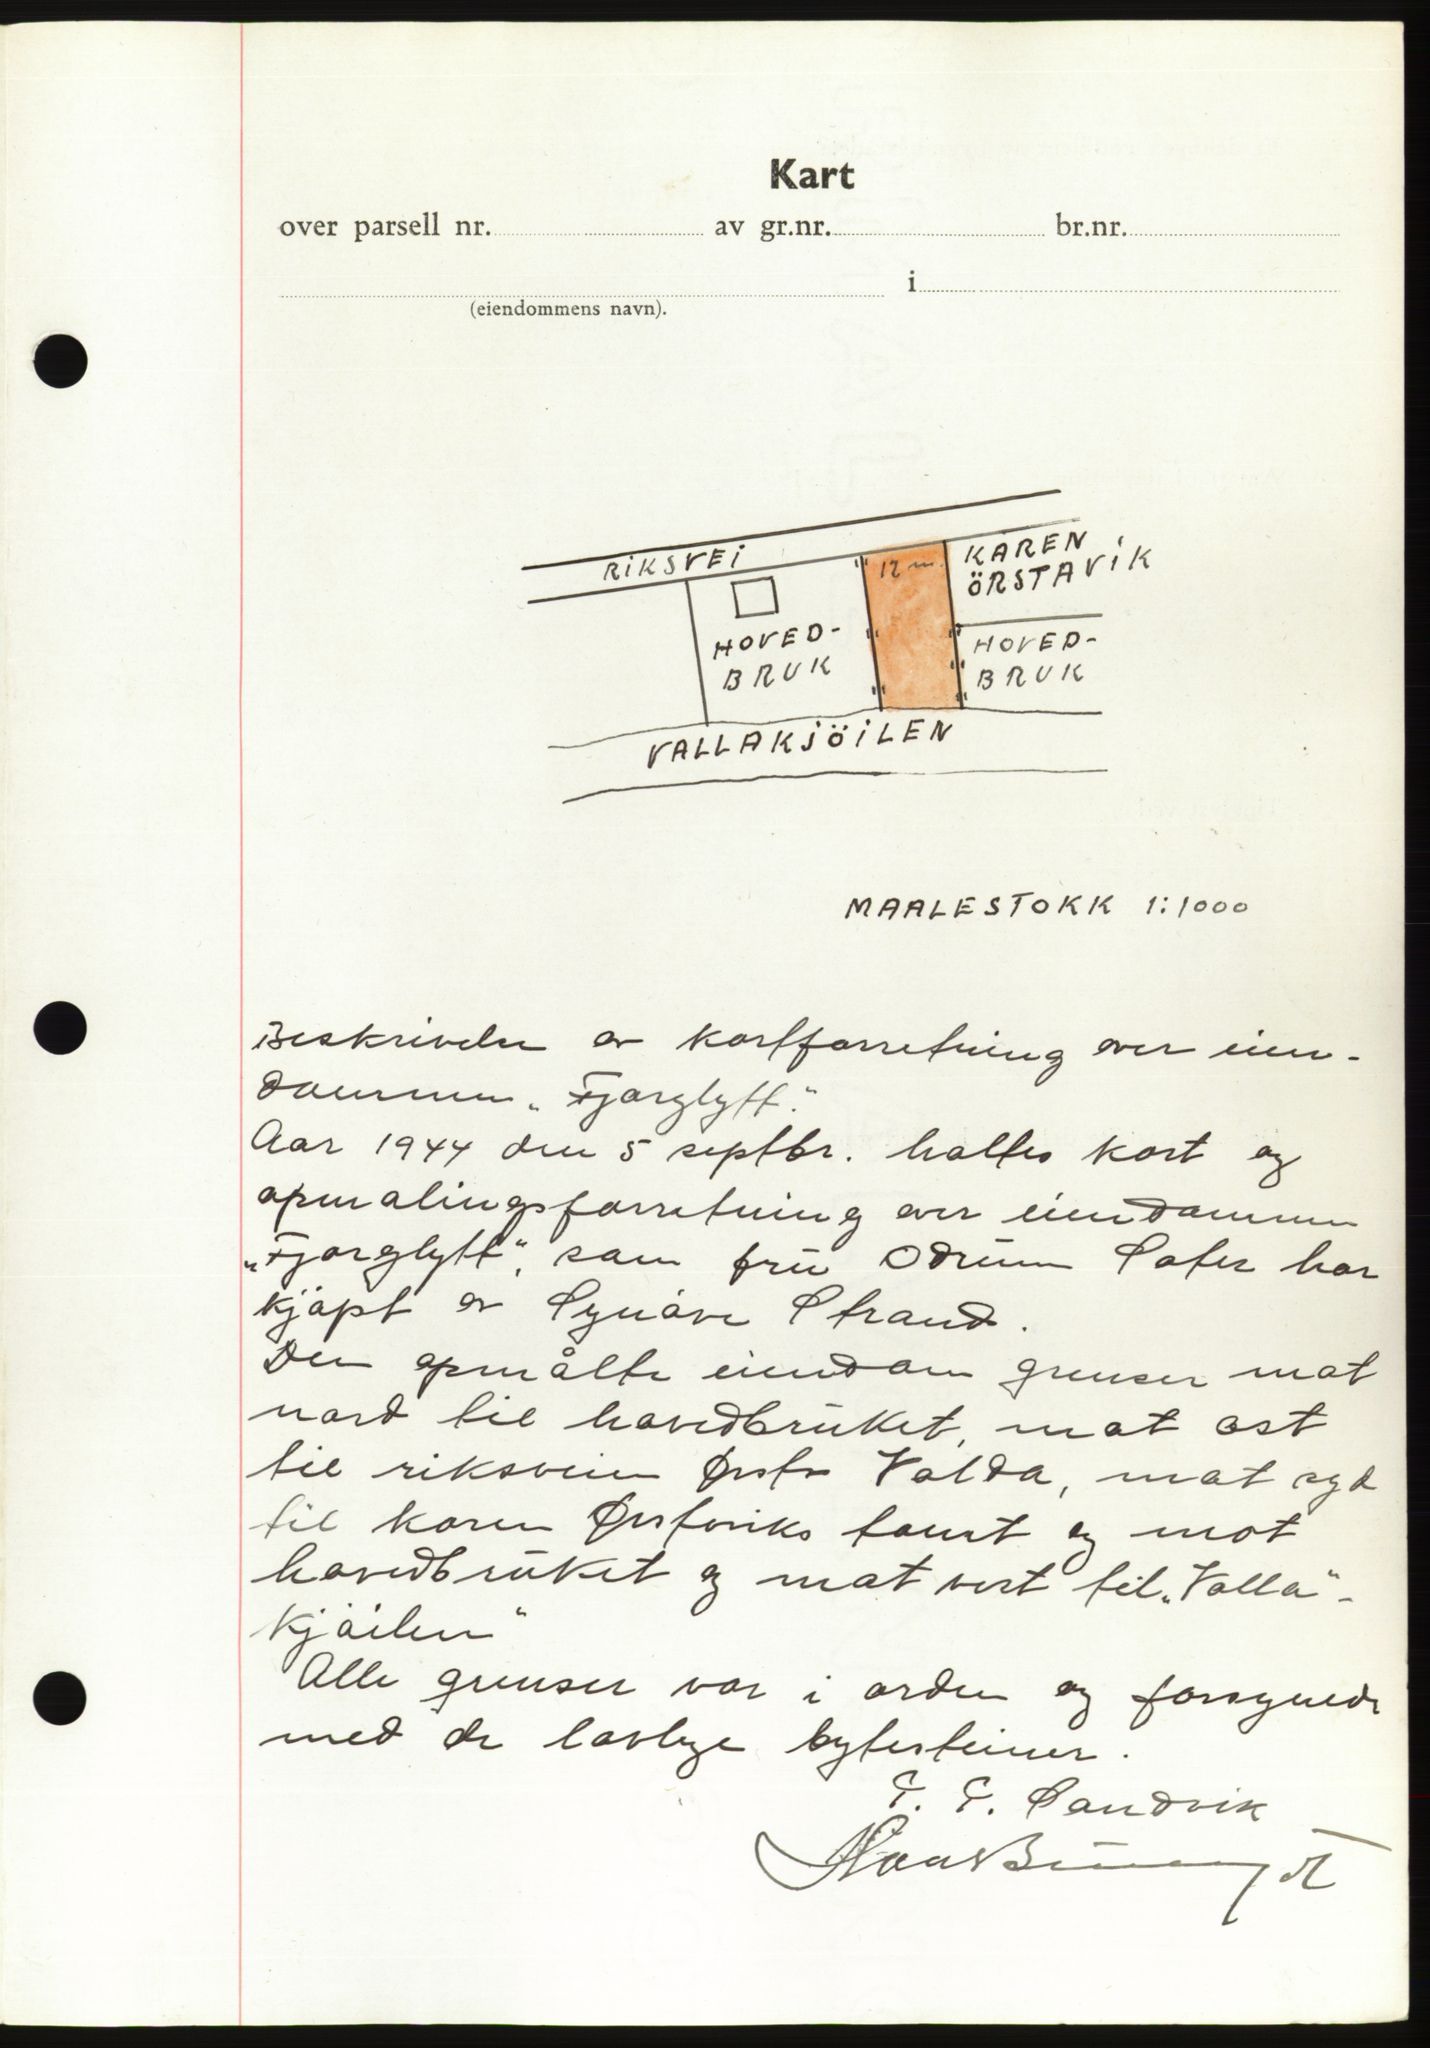 Kart
over parsell nr. av gr.nr. br.nr.
i
(eiendommens navn).
RIKSVEI
12 m.
KAREN
ÖRSTAVIK
HOVED-
BRUK
HOVED-
BRUK
VALLAKJÖILEN
MAALESTOKK 1:1000
Beskrivelse av kartforretning over eien-
dommen „Fjorglytt".
Aar 1944 den 5 septbr.holtes kart og
opmalingsforretning over eiendommen
„Fjorglytt", som frü Odrün Sæter har
kjöpt av Synöve Strand.
Den opmålte eiendom grenser mot
nord til hovedbrüket, mot öst
til riksveien Ørsta Volda, mot syd
til Karen Ørstaviks tomt og mot
hovedbrüket og mot vest til „Valla"-
kjöilen"
Alle grenser var i orden og forsynede
med de lovlige bytesteiner.
Sandvik